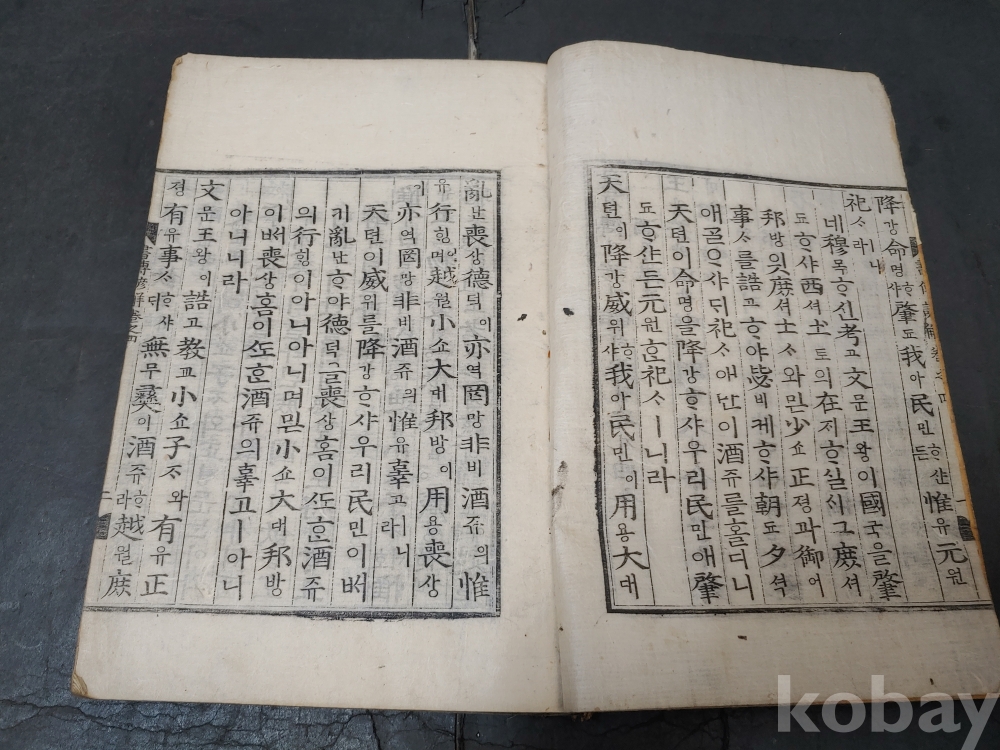 降강命명ᄒᆞ샤肇됴我아民민ᄒᆞ샨든惟유元원
祀ᄉᆞㅣ니라
네穆목ᄒᆞ신考고文문王왕이國국을肇
됴ᄒᆞ샤西셔土토의在ᄌᆡᄒᆞ실ᄉᆡ그庶셔
邦방읫庶셔士ᄉᆞ와믿少쇼正졍과御어
事ᄉᆞ를誥고ᄒᆞ야毖비케ᄒᆞ샤朝됴夕셕
애ᄀᆞᆯᄋᆞ샤ᄃᆡ祀ᄉᆞ애만이酒쥬를홀디니
天텬이命명을降강ᄒᆞ샤우리民민애肇
됴ᄒᆞ샨든元원ᄒᆞᆫ祀ᄉᆞㅣ니라
天텬이降강威위ᄒᆞ샤我아民민이用용大대
亂난喪상德덕이亦역罔망非비酒쥬의惟
유行ᄒᆡᆼ이며越월小쇼大대邦방이用용喪상
이亦역罔망非비酒쥬의惟유辜고ㅣ니라
天텬이威위를降강ᄒᆞ샤우리民민이ᄡᅥ
키亂난ᄒᆞ야德덕을喪상홈이ᄯᅩᄒᆞᆫ酒쥬
의行ᄒᆡᆼ이아니아니며믿小쇼大대邦방
이ᄡᅥ喪상홈이ᄯᅩᄒᆞᆫ酒쥬의辜고ㅣ아니
아니니라
文문王왕이誥고教교小쇼子ᄌᆞ와有유正
졍有유事ᄉᆞᄒᆞ샤ᄃᆡ無무彝이酒쥬ᄒᆞ라越월庶
書傳諺解卷之四
kobay